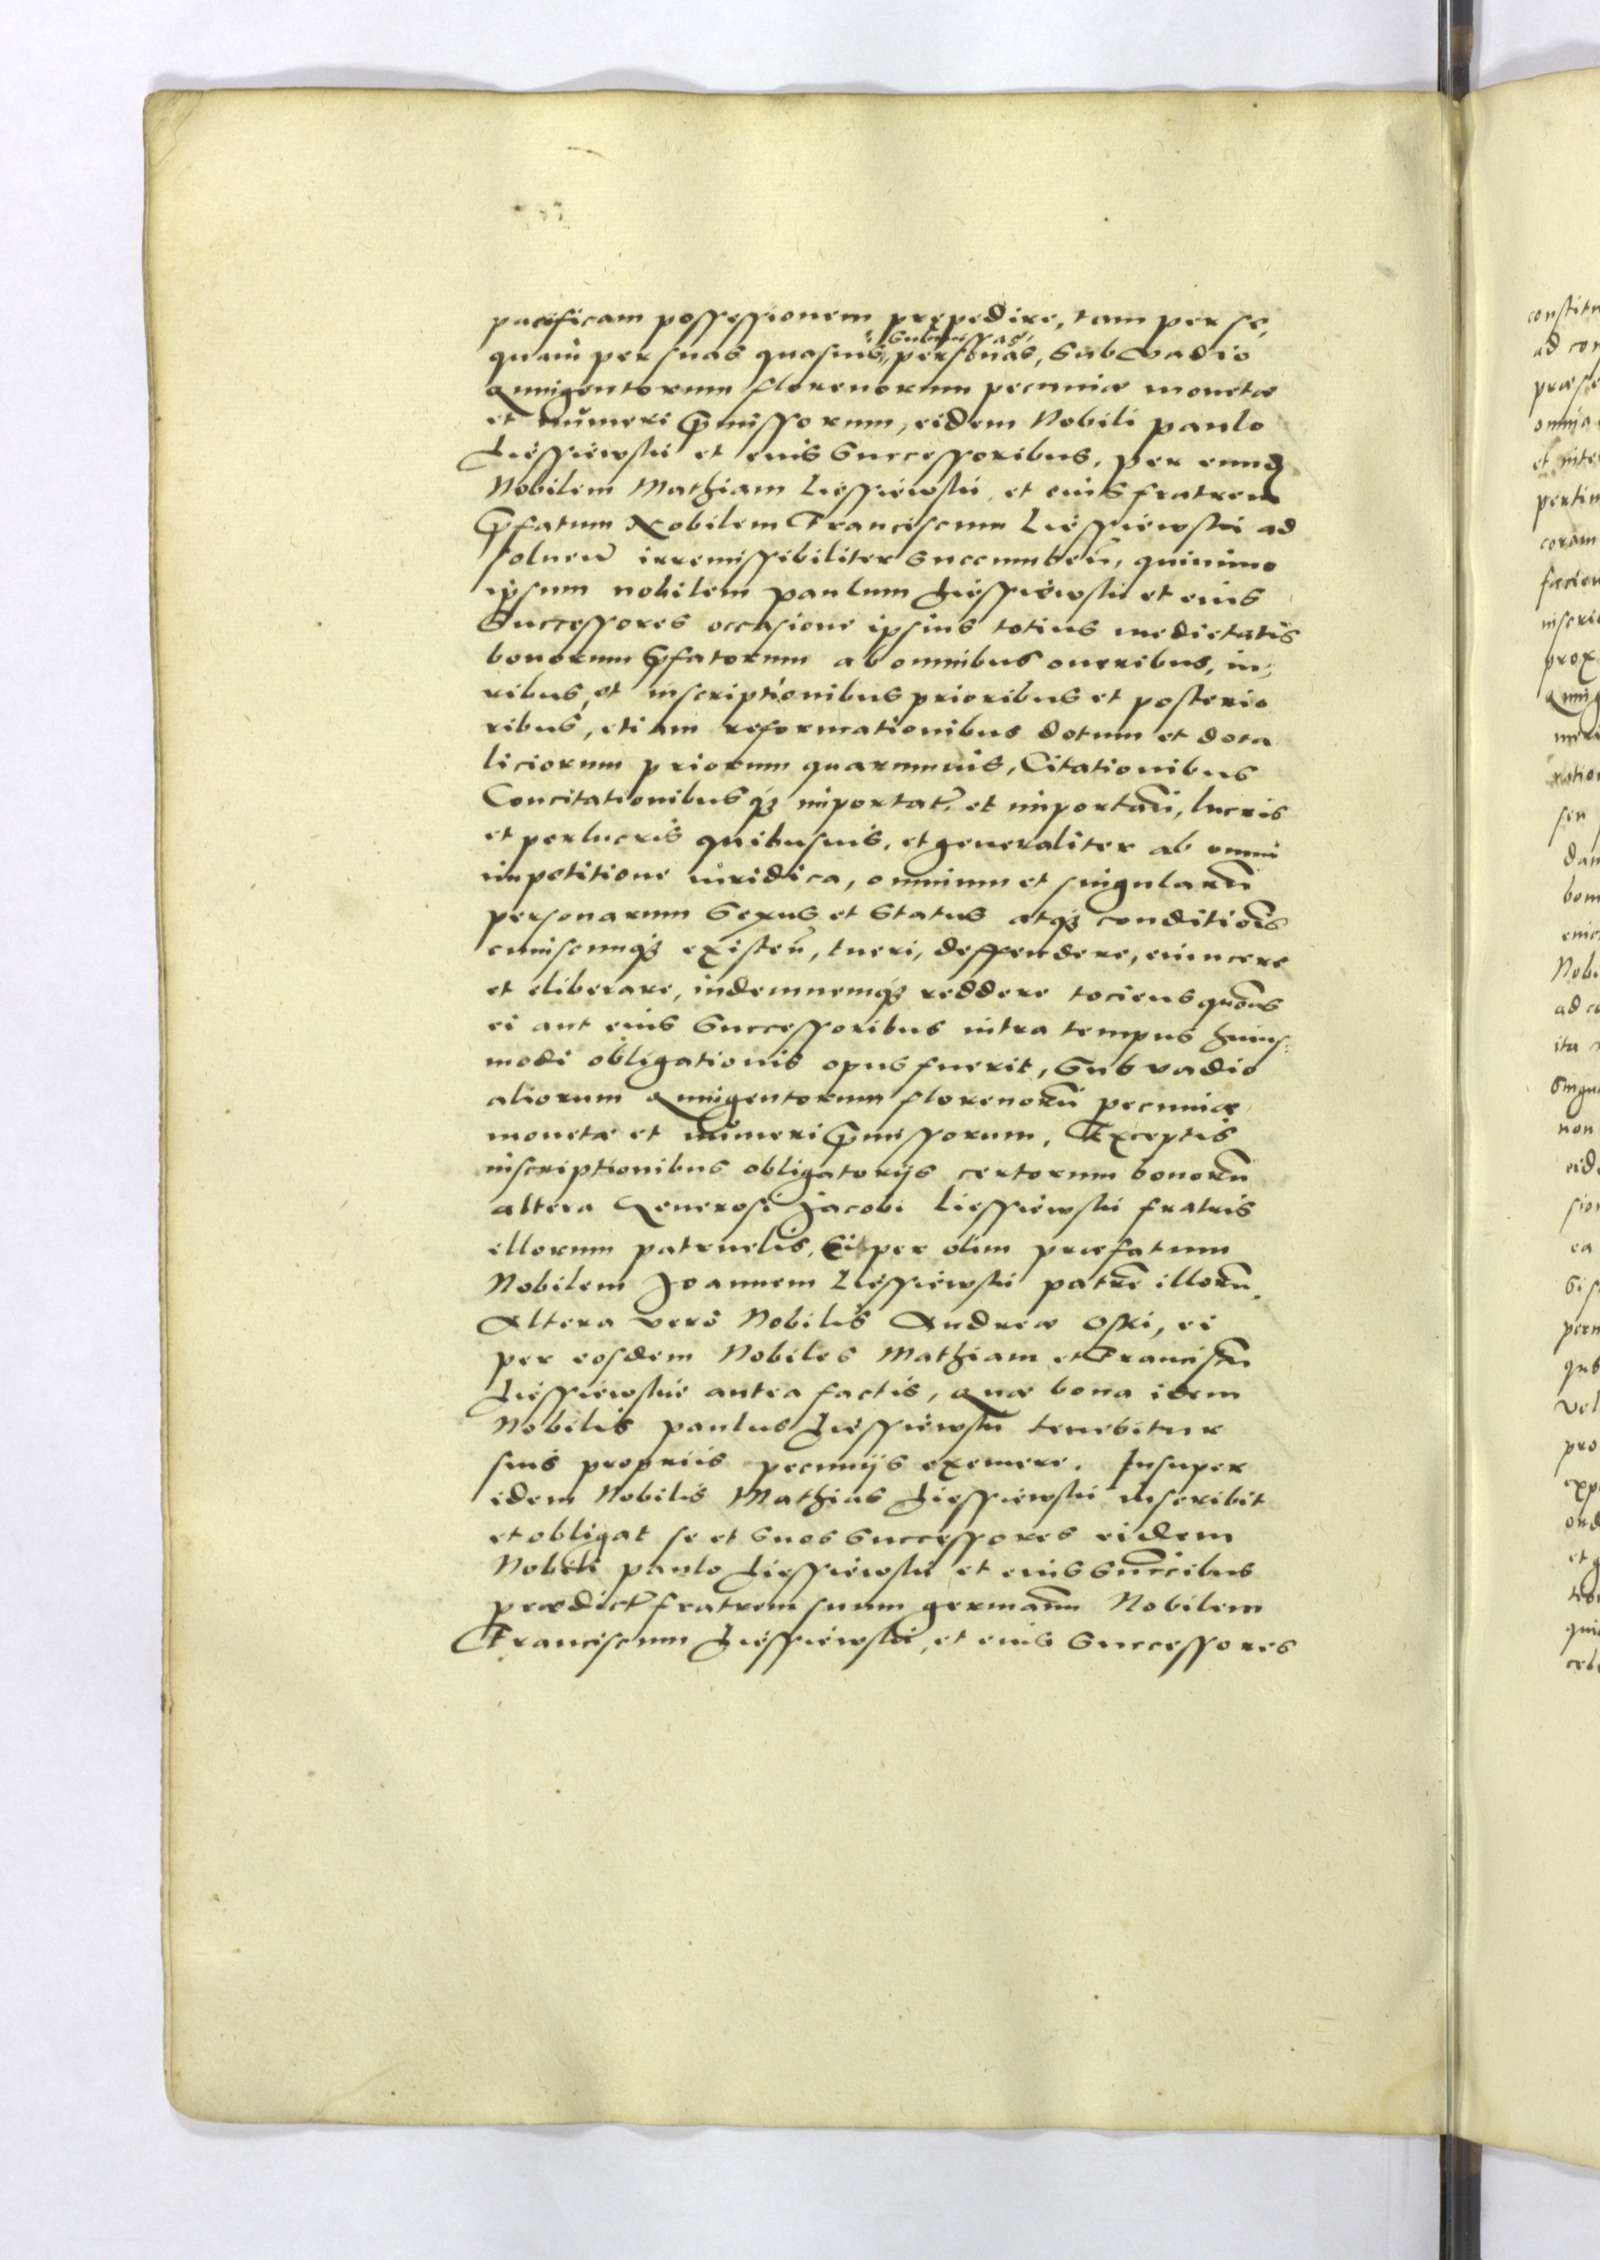 pacificam possessionem prępedire, tam per se,
quam per suas quasuis submissas personas, sub vadio
quingentorum florenorum pecuniæ monetæ
et numeri p̄missorum, eidem Nobili Paulo
Liessiewski et eius Successoribus, per eund
Nobilem Mathiam Liessiewski, et eius fratrem
p̄fatum Nobilem Franciscum Liessiewski ad
soluen̄ irremissibiliter succumben̄, quinimo
ipsum nobilem Paulum Liessiewski et eius
Successores occasione ipsius totius medietatis
bonorum p̄fatorum ab omnibus oneribus, iu-
ribus, et inscriptionibus prioribus et posterio
ribus, etiam reformationibus dotum et dota
liciorum priorum quarumuis, Citationibus
Concitationibusq₃ importat̄. et importan̄, lucris
et perlucris quibusuis, et generaliter ab omni
impetitione iuridica, omnium et singularū
personarum Sexus et Status atq₃ conditiōis
cuiuscunq₃ existen̄, tueri, deffendere, euincere
et eliberare, indemnemq₃ reddere tociens quōens
ei aut eius Successoribus intra tempus huius-
modi obligationis opus fuerit, Sub vadio
aliorum Quingentorum florenorū pecuniæ
monetæ et numeri p̄missorum, Exceptis
inscriptionibus obligatorijs certorum bonorū
altera Generosi Jacobi Liessiewski fratris
illorum patruelis, Ei per olim præfatum
Nobilem Joannem Liessiewski patrē illorū.
Altera vero Nobilis Andreæ Oski, ei
per eosdem Nobiles Mathiam et Franciscū
Liessiewskie antea factis, Quæ bona idem
Nobilis Paulus Liessiewski tenebitur
suis propriis pecunijs exemere. Insuper
idem Nobilis Mathias Liessiewski inscribit
et obligat se et suos successores eidem
Nobili Paulo Liessiewski et eius Succ̄ribus
prædict̄ fratrem suum germanū Nobilem
Franciscum Liessiewski, et eius Successores